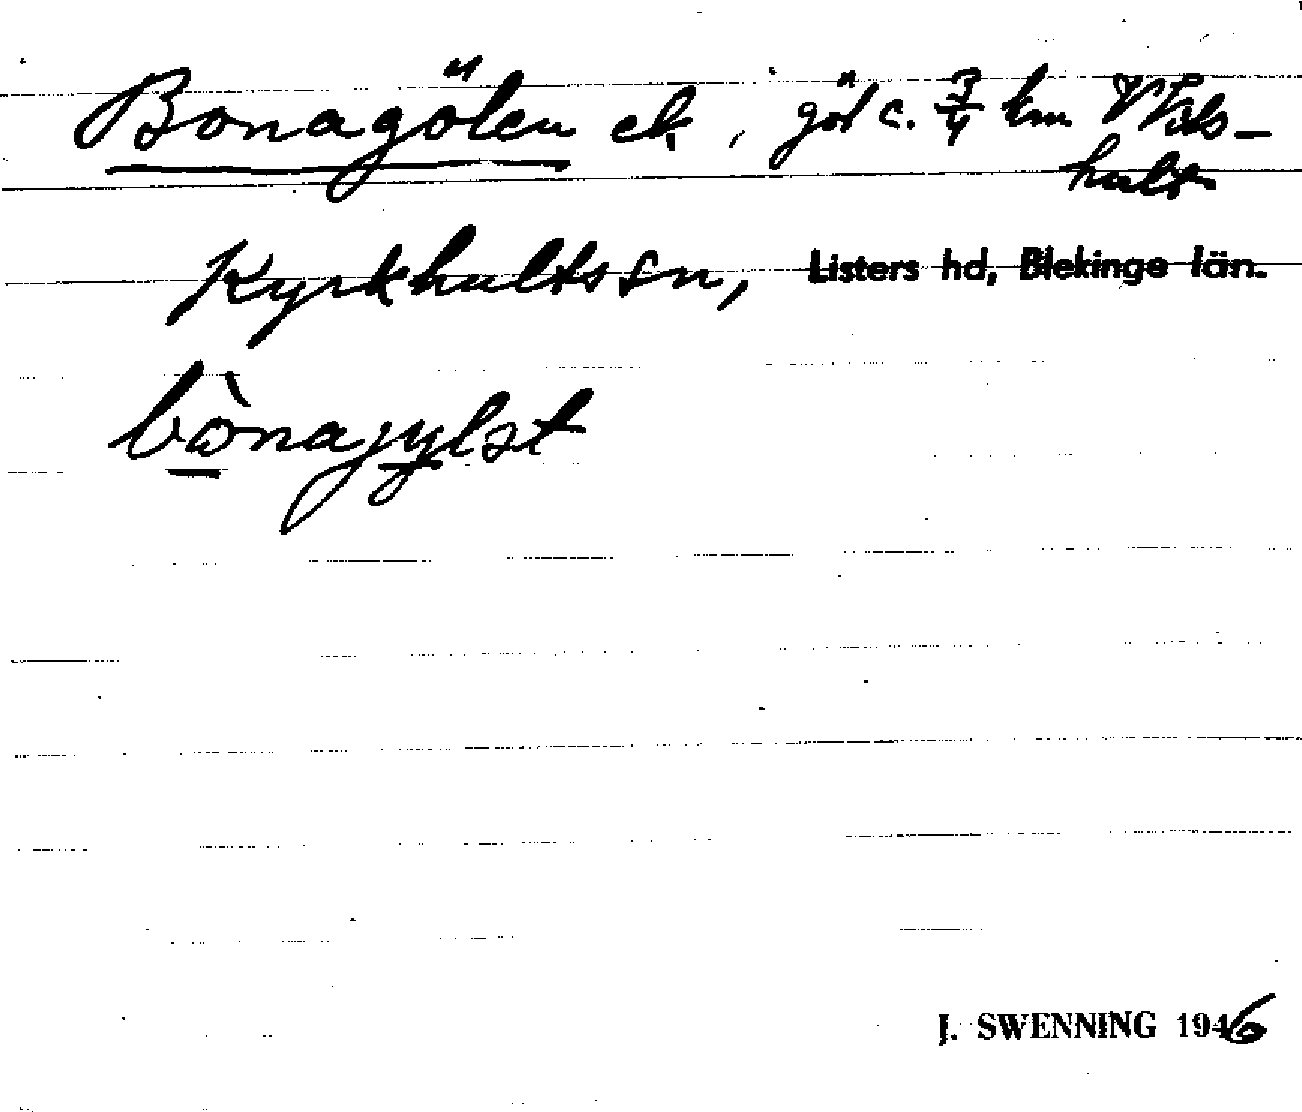 Bonagölen ek, göl c. 3/4 km V Vils-
hult
Kyrkhults sn, Listers hd, Blekinge län.
J. SWENNING 1946